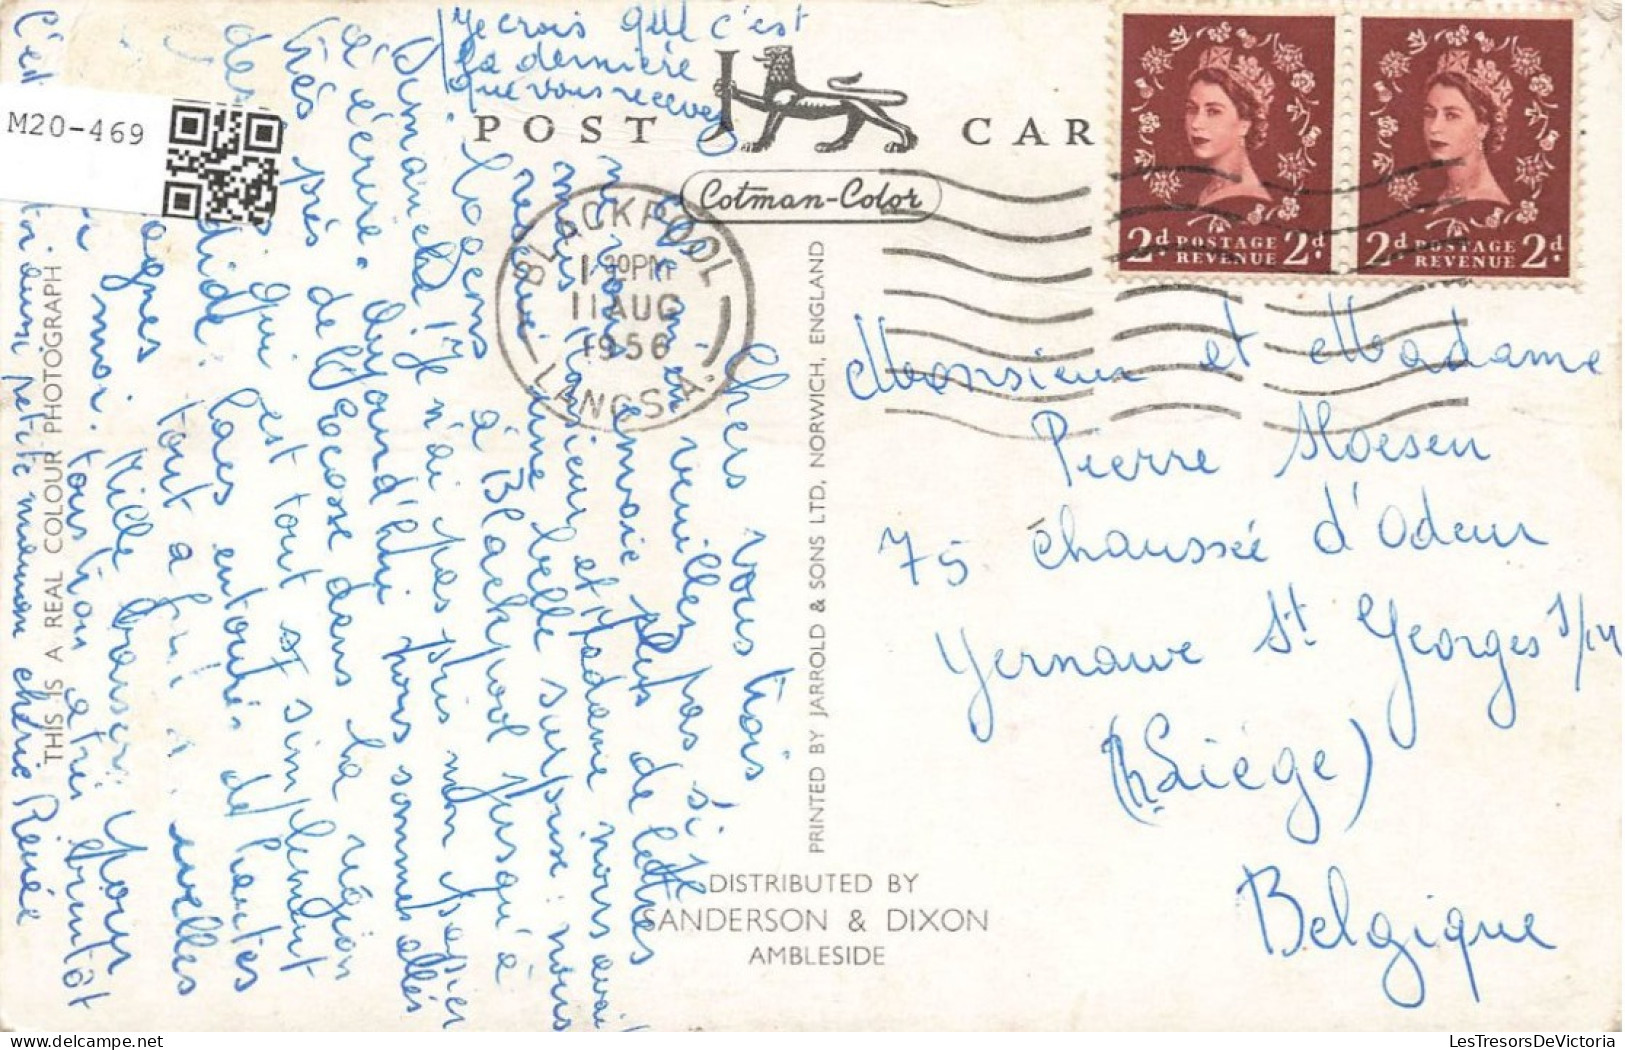 Je crois que c'est
la dernière
que vous recevez
POST CAR
Cotman-Color
M20-469
BLACKPOOL
1 30PM
11 AUG
1956
LANCS. A.
2d POSTAGE REVENUE 2d.
2d POSTAGE REVENUE 2d.
Chers vous trois
Ne m'en veuillez pas si je
ne vous envoie plus de lettres
mais Monsieur et Madame nous avai
réservé une belle surprise: nous
logens à Blackpool jusqu'à
Dimanche! Je n'ai pas pris mon papier
d'écrire. Aujourd'hui nous sommes allés
très près de l'Ecosse dans la région
des
qui est tout simplement
splendide. Lacs entourés de hautes
tout à fait
Mille baisers pour
moi. Tous trois à très bientôt
C'est
petite maman chérie Renée
THIS IS A REAL COLOUR PHOTOGRAPH
PRINTED BY JARROLD & SONS LTD, NORWICH, ENGLAND
DISTRIBUTED BY
SANDERSON & DIXON
AMBLESIDE
Monsieur et Madame
Pierre Moesen
75 Chaussée d'Odeur
Yernawe St Georges s/m
(Liège)
Belgique
LesTresorsDeVictoria.com